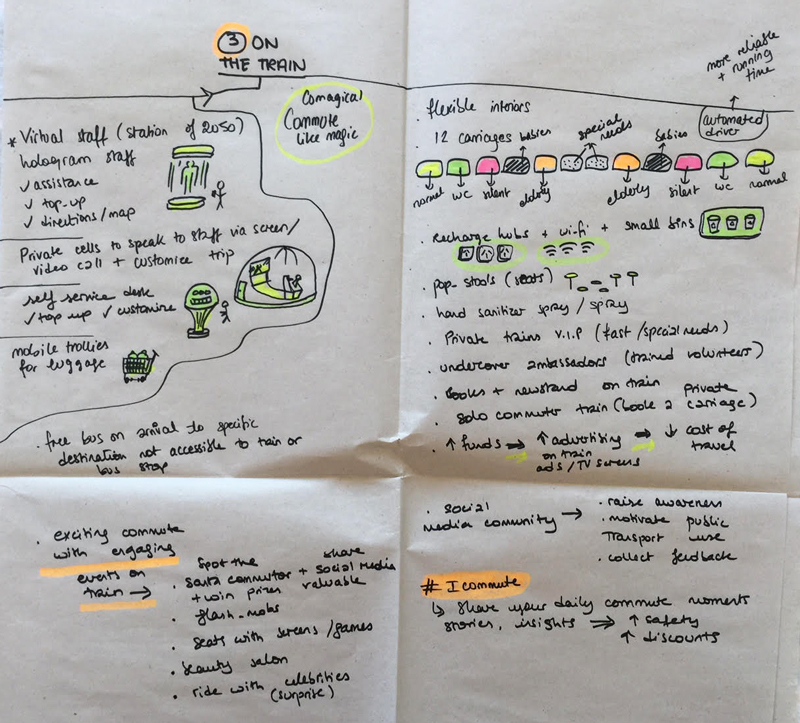 3 ON
THE TRAIN
Comagical
Commute
like magic
* Virtual staff (station of 2050)
hologram staff
✓ assistance
✓ top-up
✓ directions/map
Private cells to speak to staff via screen/
video call + customize trip
self service desk
✓ top up ✓ customize
mobile trollies
for luggage
. free bus on arrival to specific
destination not accessible to train or
bus stop
more reliable
+ running
time
automated
driver
. flexible interiors
. 12 carriages
babies
special needs
babies
normal
wc
silent
elderly
elderly
silent
wc
normal
. recharge hubs + wi-fi + small bins
. pop-stools (seats)
. hand sanitizer spray / spray
. Private trains V.I.P (fast /special needs)
. undercover ambassadors (trained volunteers)
. Books + newstand on train private
. solo commuter train (book a carriage)
. ↑ funds → ↑ advertising → ↓ cost of
travel
on train
ads / TV screens
. exciting commute
with engaging
events on
train →
. Spot the
santa commutor + social media
share
+ win prizes valuable
. flash-mobs
. seats with screens /games
. beauty salon
. ride with celebrities
(surprise)
. social
media community →
. raise awareness
. motivate public
Transport use
. collect feedback
# I commute
↳ share your daily commute moments
stories, insights → ↑ safety
↑ discounts